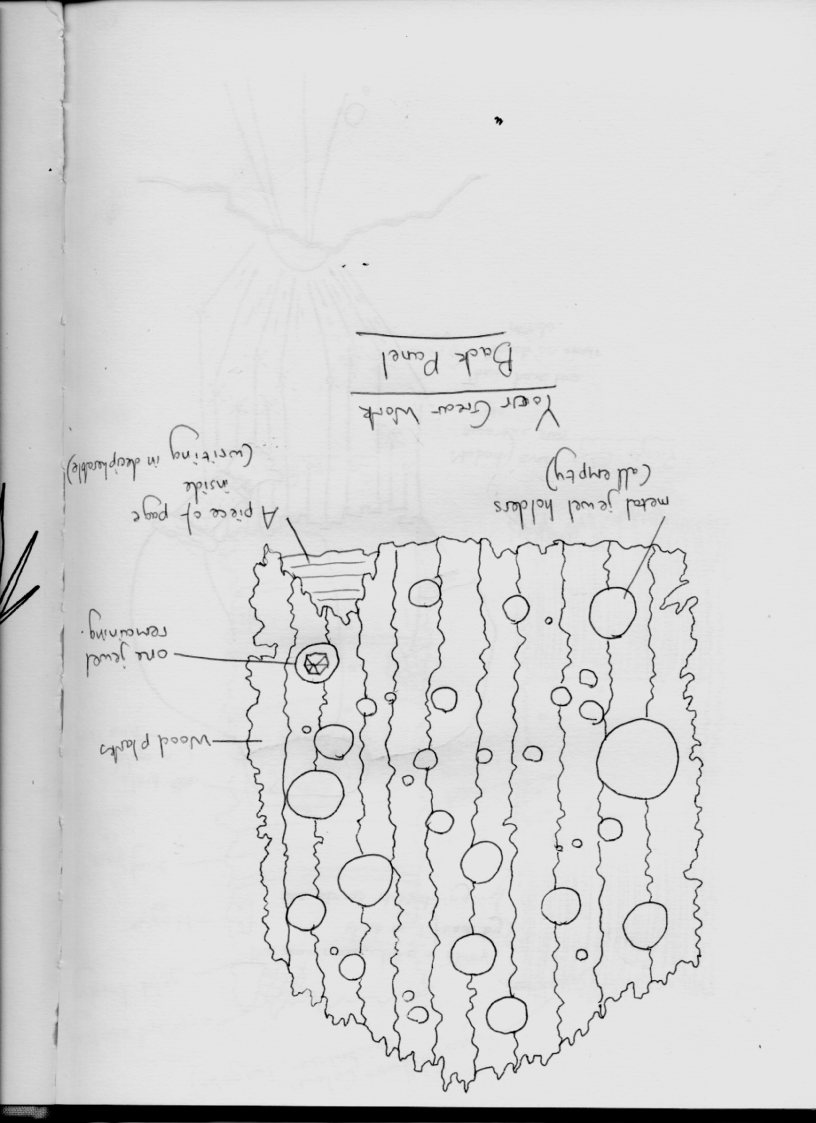 Wood planks
one jewel
remaining.
metal jewel holders
(all empty)
A piece of page
inside
(writing indecipherable)
Your Great Work
Back Panel